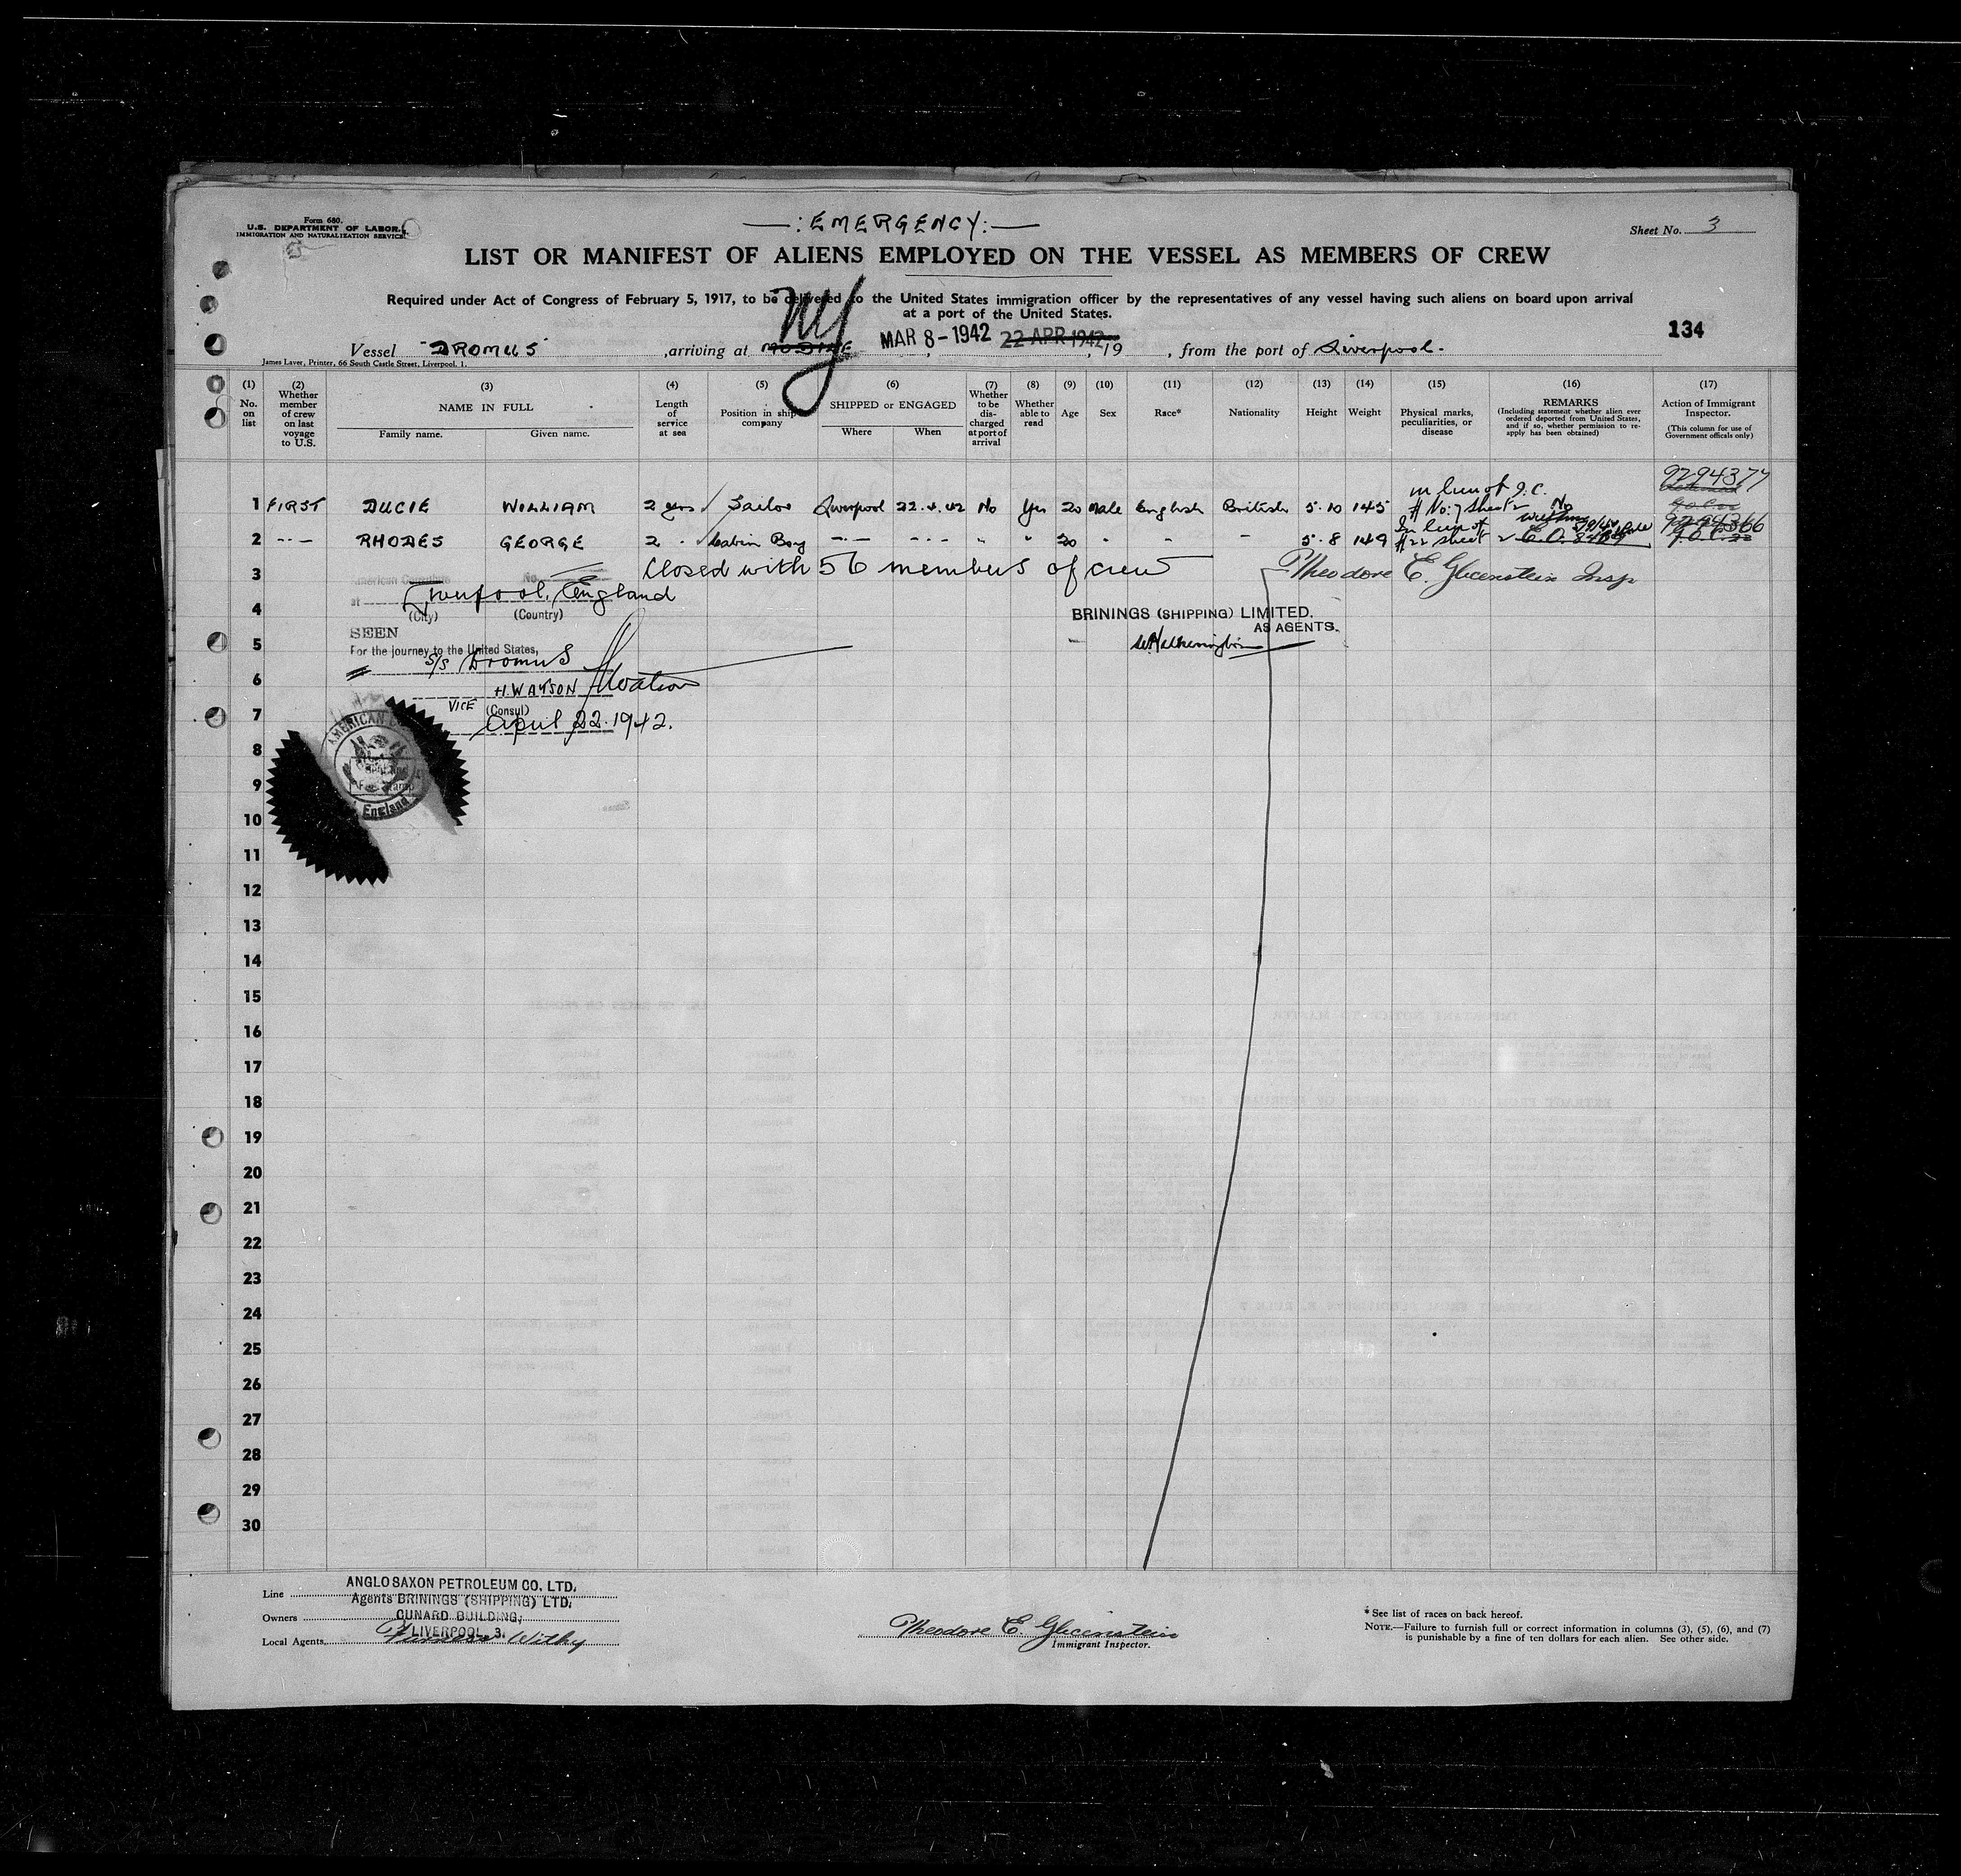 Form 680.
U.S. DEPARTMENT OF LABOR.
IMMIGRATION AND NATURALIZATION SERVICE.
—:EMERGENCY:—
Sheet No. 3
LIST OR MANIFEST OF ALIENS EMPLOYED ON THE VESSEL AS MEMBERS OF CREW
Required under Act of Congress of February 5, 1917, to be delivered to the United States immigration officer by the representatives of any vessel having such aliens on board upon arrival
at a port of the United States.
134
Vessel "DROMUS" , arriving at NY MAR 8-1942 22 APR 1942, 19 , from the port of Liverpool.
James Laver, Printer, 66 South Castle Street, Liverpool, 1.
(1) No. on list
(2) Whether member of crew on last voyage to U.S.
(3) NAME IN FULL
Family name. Given name.
(4) Length of service at sea
(5) Position in ship company
(6) SHIPPED or ENGAGED
Where When
(7) Whether to be discharged at port of arrival
(8) Whether able to read
(9) Age
(10) Sex
(11) Race*
(12) Nationality
(13) Height
(14) Weight
(15) Physical marks, peculiarities, or disease
(16) REMARKS
(Including statement whether alien ever ordered deported from United States, and if so, whether permission to re-apply has been obtained)
(17) Action of Immigrant Inspector.
(This column for use of Government officials only)
9294377
in lieu of J.C.
1 FIRST DUCIE WILLIAM 2 yrs Sailor Liverpool 22.4.42 No Yes 20 Male English British 5.10 145 # No. 7 Sheet 2 No
In lieu of
2 -·- RHODES GEORGE 2 " Cabin Boy -·- -·- " " 20 " " - 5.8 149 #22 sheet 2
3 Closed with 56 members of crew Theodore E. Glicenstein Insp
American Consulate No.
at Liverpool, England
4 (City) (Country)
BRININGS (SHIPPING) LIMITED,
AS AGENTS.
SEEN
5 For the journey to the United States,
S/S Dromus
6 H. WATSON HWatson
VICE (Consul)
7 April 22. 1942.
AMERICAN
Fee Stamp
England
8
9
10
11
12
13
14
15
16
17
18
19
20
21
22
23
24
25
26
27
28
29
30
Line ANGLO SAXON PETROLEUM CO. LTD.
Agents BRININGS (SHIPPING) LTD.
Owners CUNARD BUILDING,
LIVERPOOL, 3.
Local Agents Furness Withy
Theodore E. Glicenstein
Immigrant Inspector.
* See list of races on back hereof.
NOTE.—Failure to furnish full or correct information in columns (3), (5), (6), and (7)
is punishable by a fine of ten dollars for each alien. See other side.